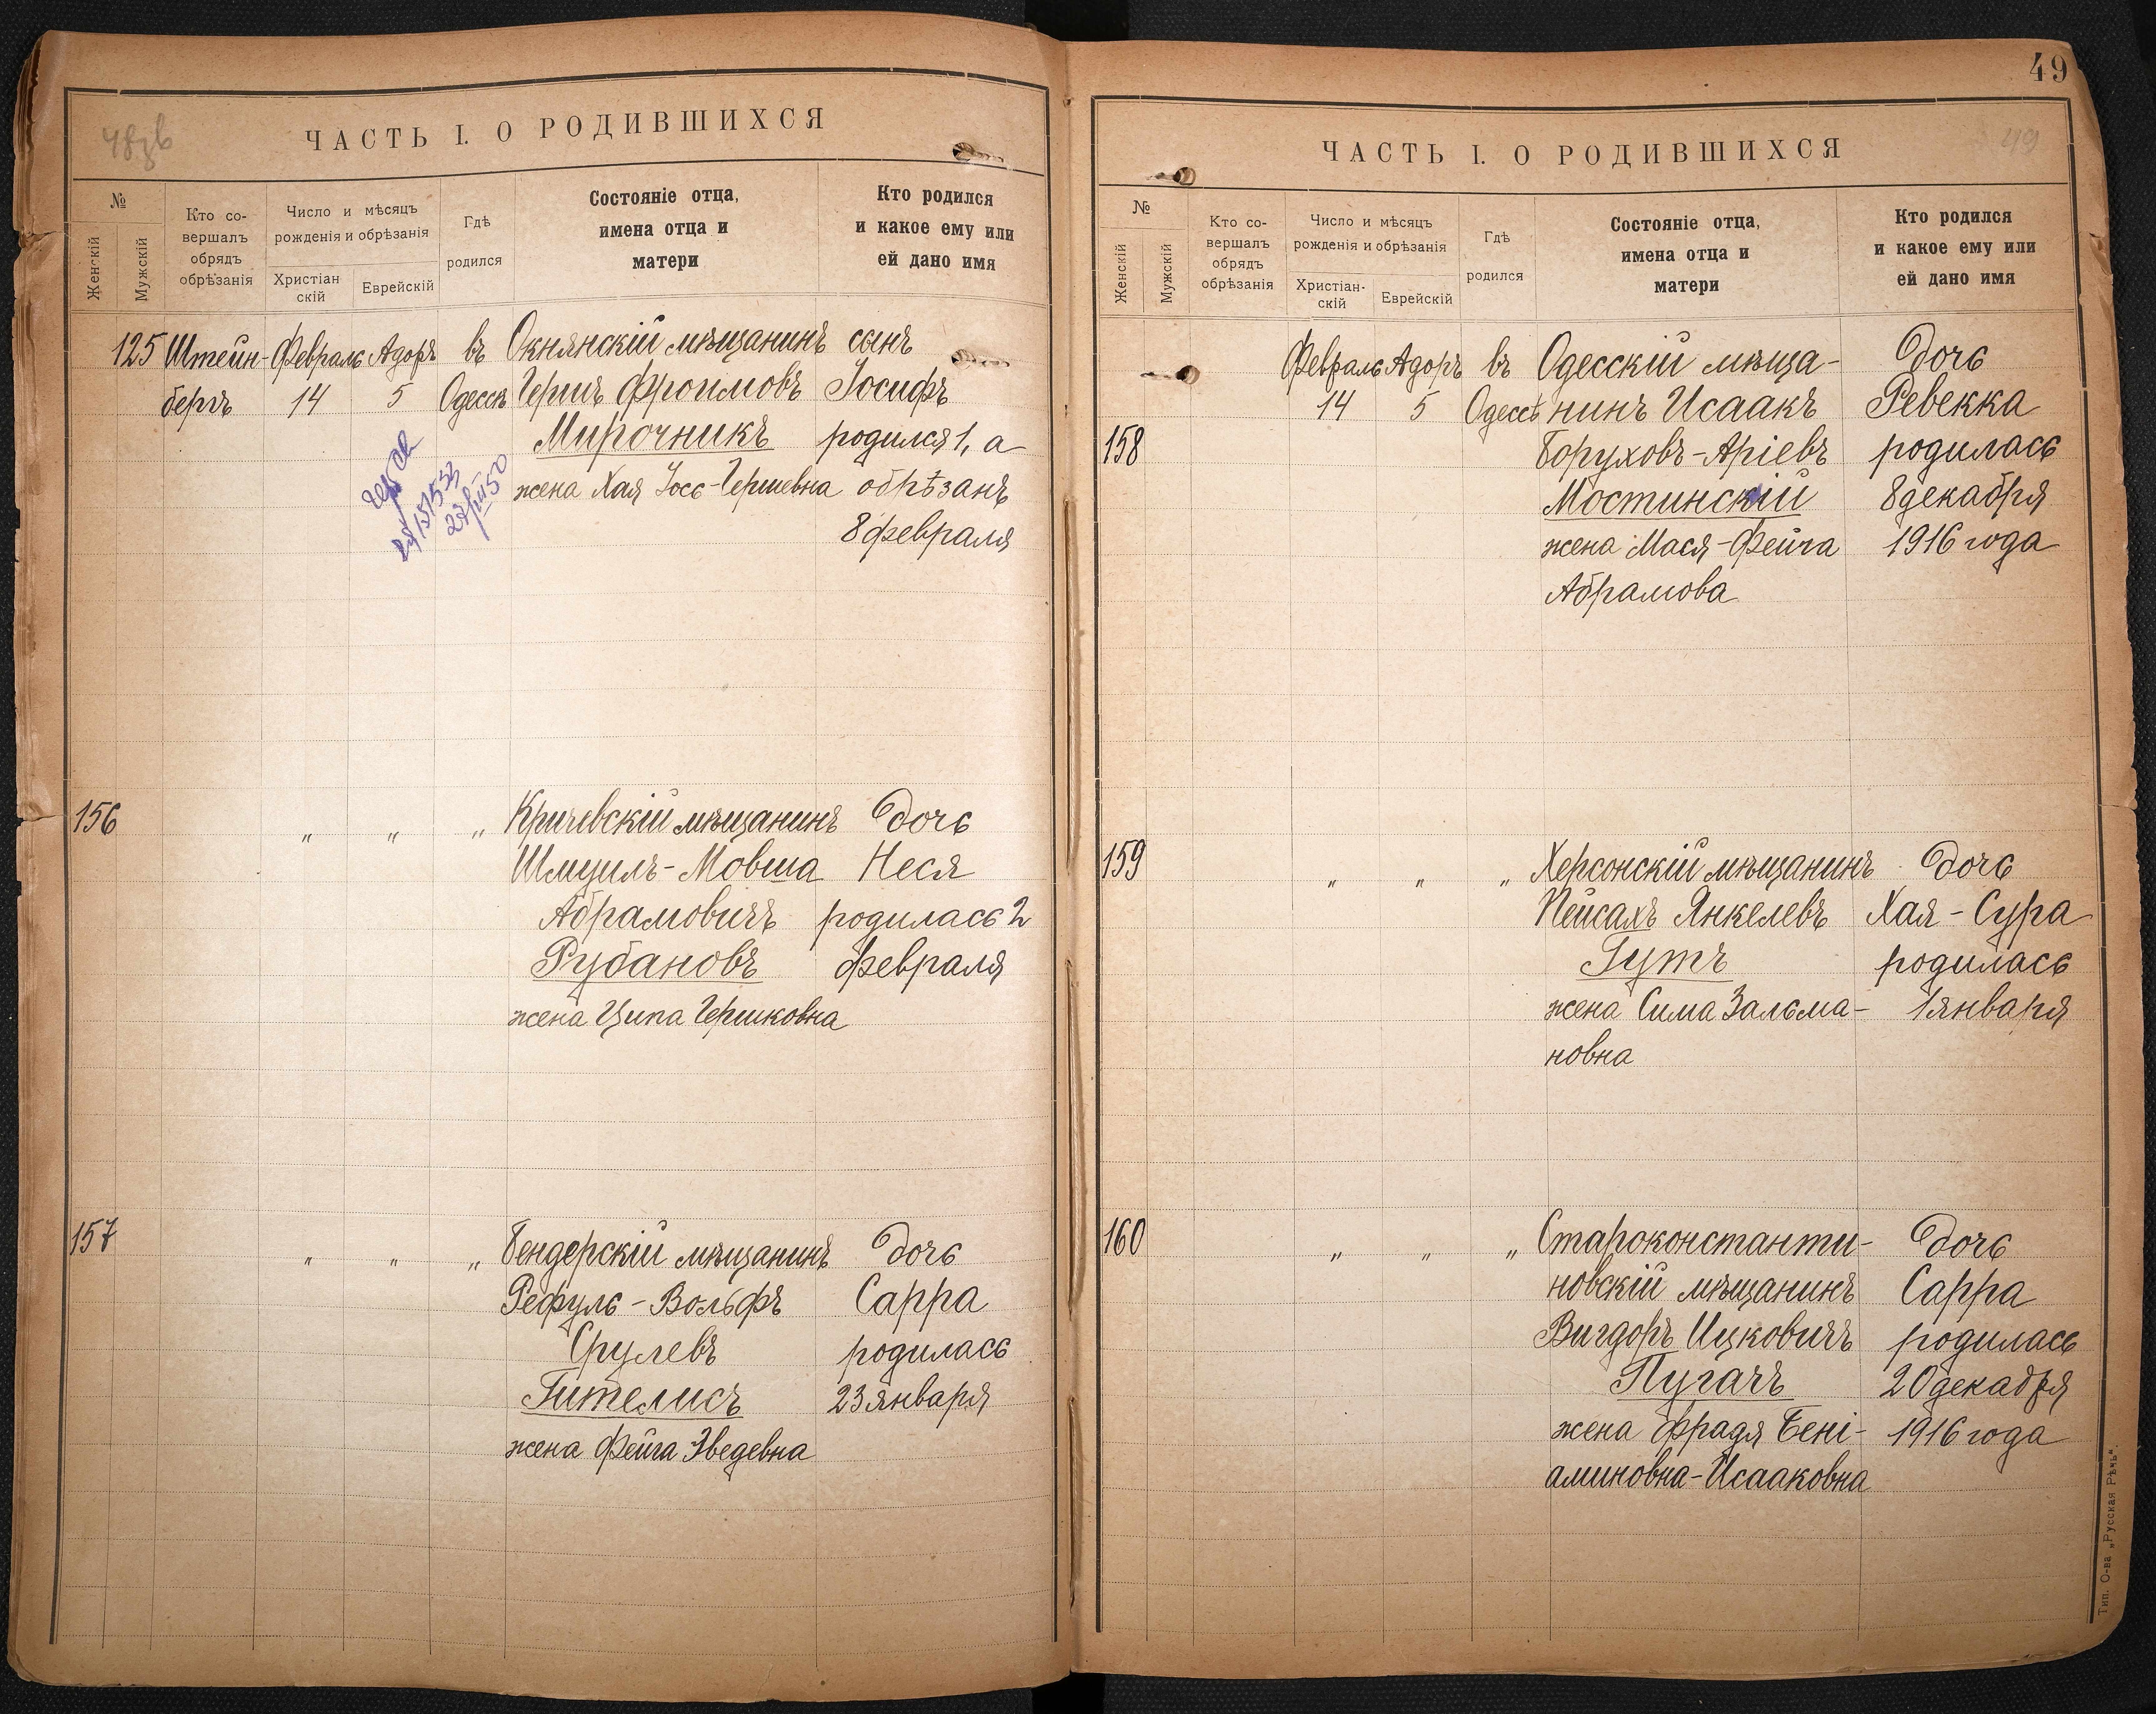 48зв
ЧАСТЬ I. О РОДИВШИХСЯ
№
Женскій
Мужскій
Кто со-
вершалъ
обрядъ
обрѣзанія
Число и мѣсяцъ
рожденія и обрѣзанія
Христіан
скій
Еврейскій
Гдѣ
родился
Состояніе отца,
имена отца и
матери
Кто родился
и какое ему или
ей дано имя
125 Штейн- Февраль Адоръ въ Окнянскій мѣщанинъ сынъ
бергъ 14 5 Одессѣ Гершъ Фроимовъ Іосифъ
Мирочникъ родился 1, а
жена Хая Іось-Гершевна обрѣзанъ
8 февраля
156 " " " Кричевскій мѣщанинъ Дочь
Шмуилъ-Мовша Неся
Абрамовичъ родилась 2
Рубановъ февраля
жена Ципа Гершковна
157 " " " Бендерскій мѣщанинъ Дочь
Рефулъ-Вольфъ Сарра
Срулевъ родилась
Гителисъ 23 января
жена Фейга Зведевна
49
ЧАСТЬ I. О РОДИВШИХСЯ
49
№
Женскій
Мужскій
Кто со-
вершалъ
обрядъ
обрѣзанія
Число и мѣсяцъ
рожденія и обрѣзанія
Христіан-
скій
Еврейскій
Гдѣ
родился
Состояніе отца,
имена отца и
матери
Кто родился
и какое ему или
ей дано имя
Февраль Адоръ въ Одесскій мѣща- Дочь
14 5 Одессѣ нинъ Исаакъ Ревекка
158 Боруховъ-Аріевъ родилась
Мостинскій 8 декабря
жена Мася-Фейга 1916 года
Абрамова
159 " " " Херсонскій мѣщанинъ Дочь
Пейсахъ Янкелевъ Хая-Сура
Гутъ родилась
жена Сима Зальма- 1 января
новна
160 " " " Староконстанти- Дочь
новскій мѣщанинъ Сарра
Вигдоръ Ицковичъ родилась
Пугачъ 20 декабря
жена Фрадя Бені- 1916 года
аминовна-Исааковна
Тип. О-ва „Русская Рѣчь".